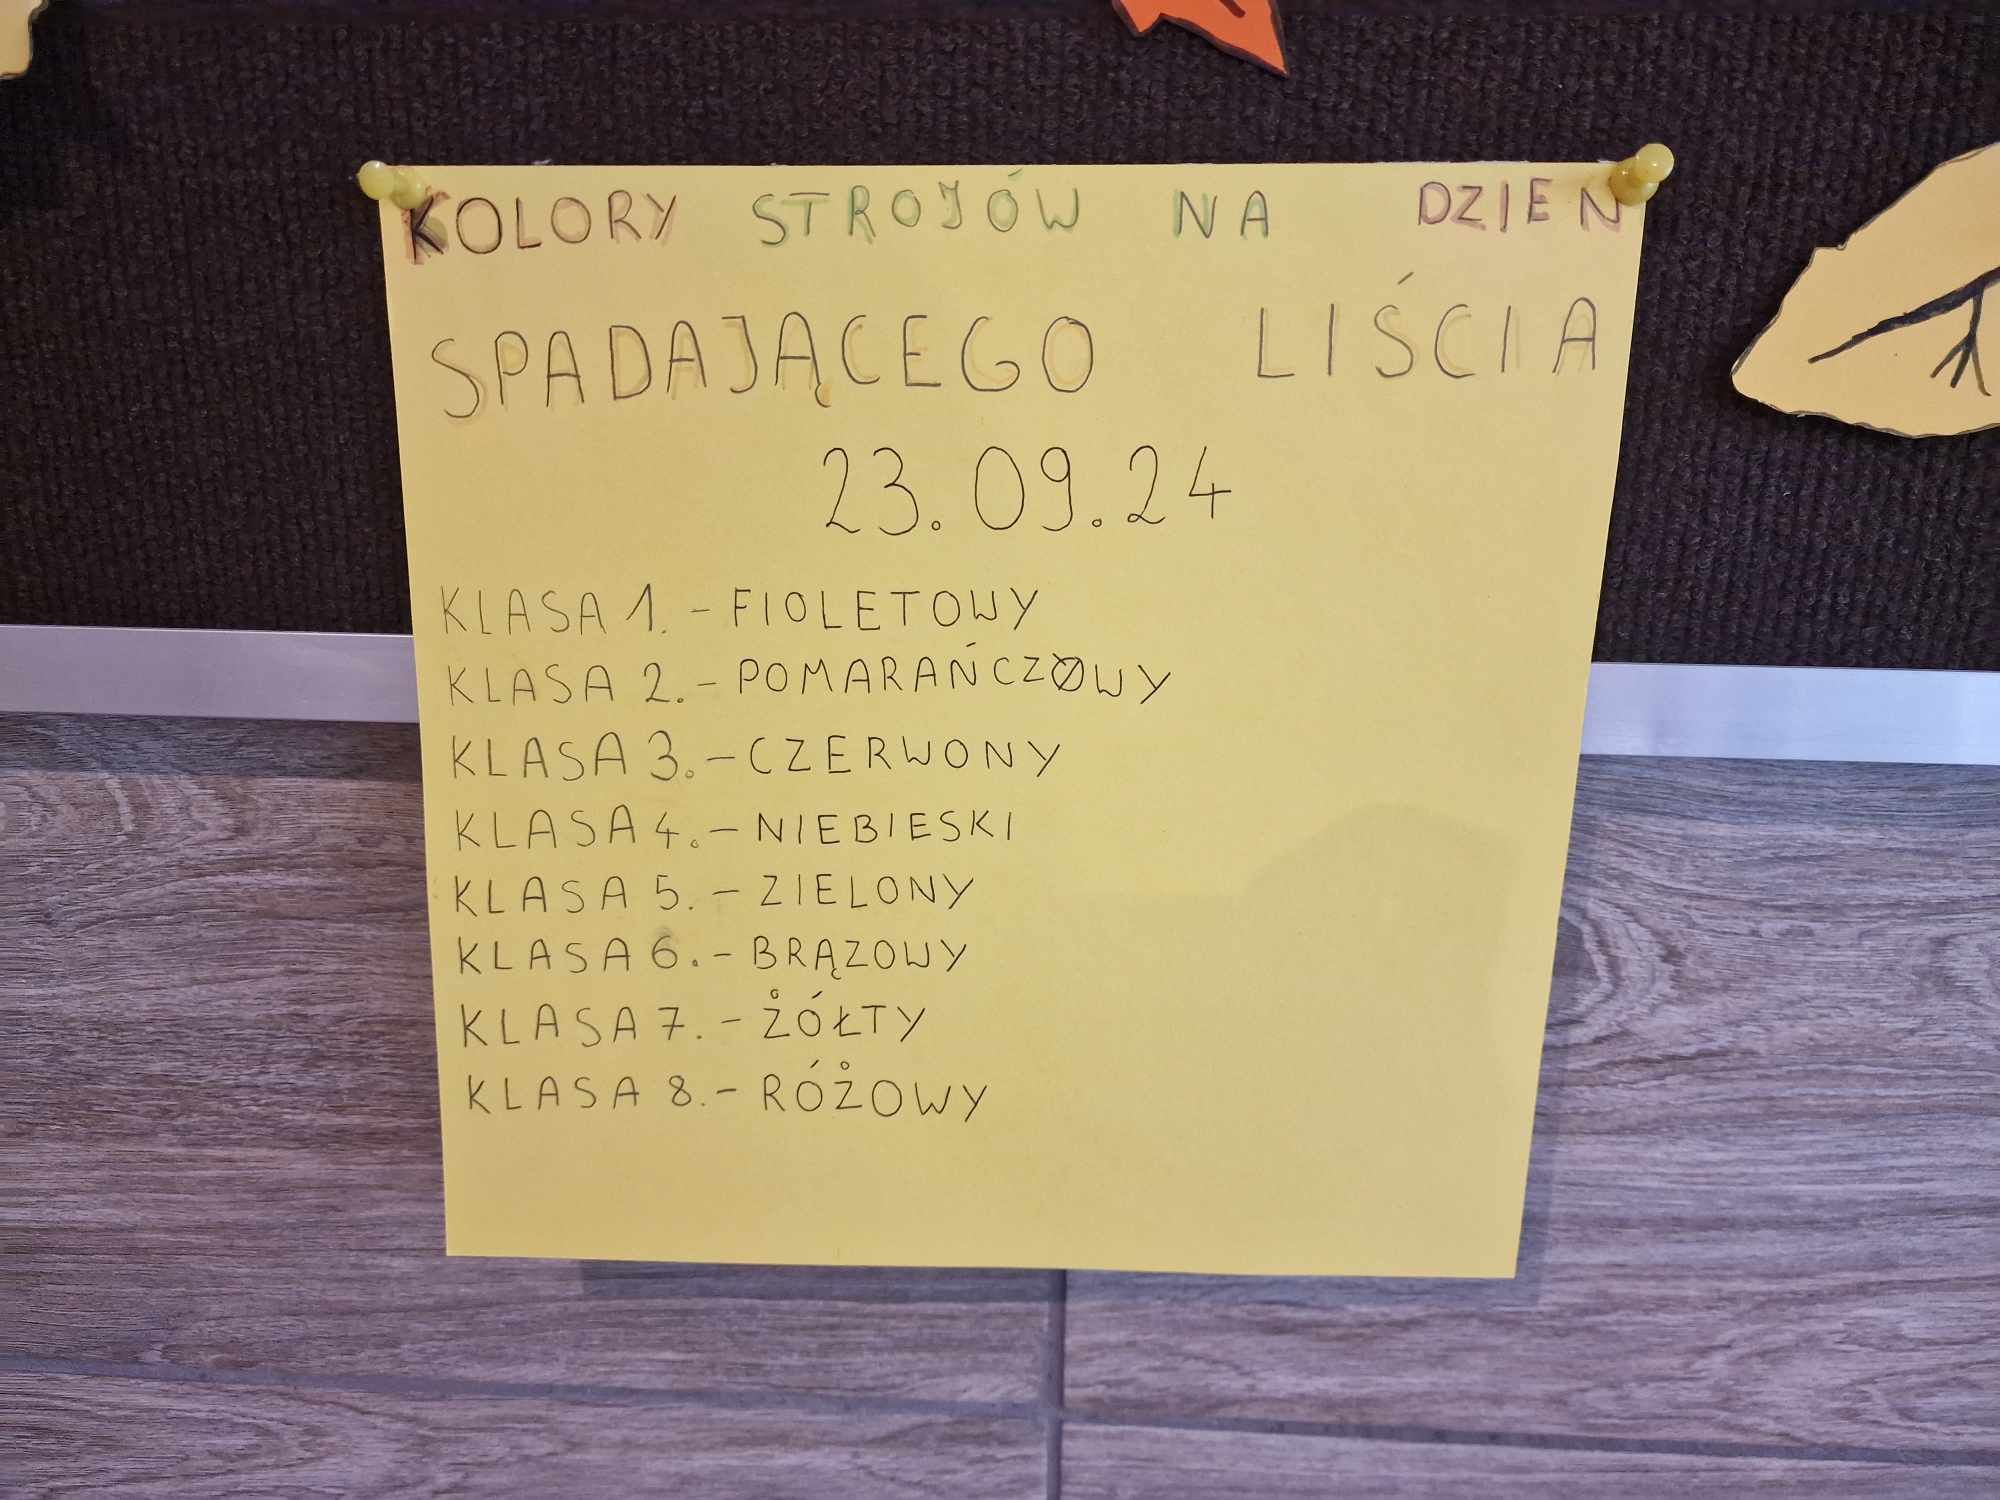 KOLORY STROJÓW NA DZIEN
SPADAJĄCEGO LIŚCIA
23.09.24
KLASA 1. - FIOLETOWY
KLASA 2. - POMARAŃCZOWY
KLASA 3. - CZERWONY
KLASA 4. - NIEBIESKI
KLASA 5. - ZIELONY
KLASA 6. - BRĄZOWY
KLASA 7. - ŻÓŁTY
KLASA 8. - RÓŻOWY